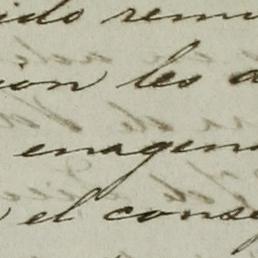 ido remi
ion les d
enagen
el conse